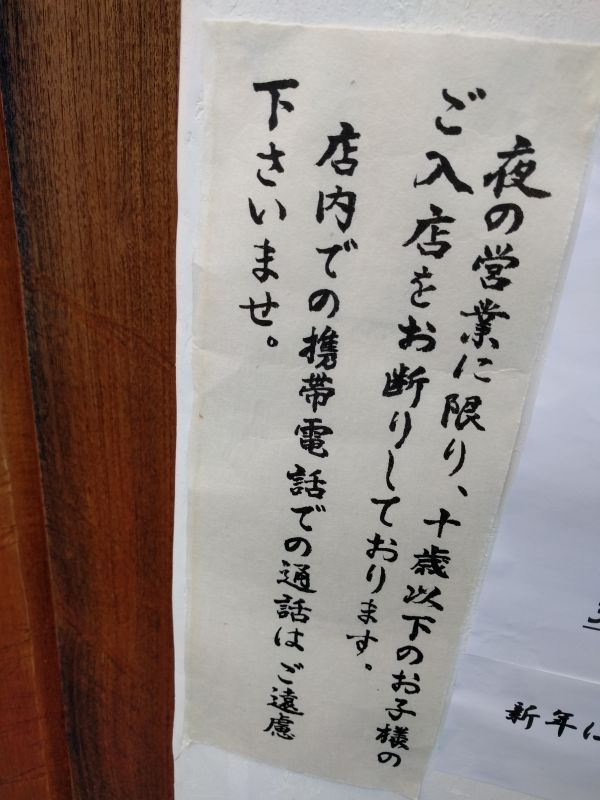 夜の営業に限り、十歳以下のお子様の
ご入店をお断りしております。
店内での携帯電話での通話はご遠慮
下さいませ。
新年に